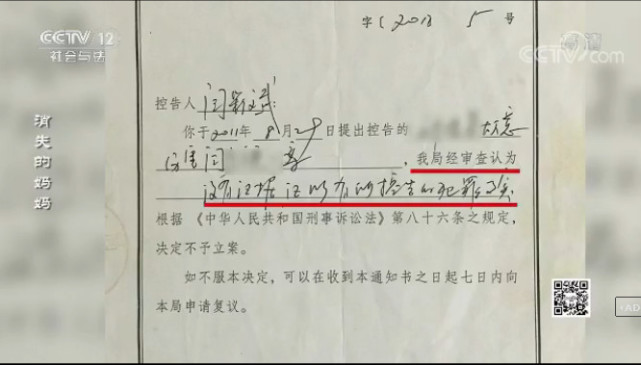 CCTV 12
社会与法
CCTV.com
消失的妈妈
字〔2013 5 号
控告人 闫新斌:
你于2011年8月29日提出控告的 故意
伤害闫 案 , 我局经审查认为
没有证据证明你所控告的犯罪事实
根据《中华人民共和国刑事诉讼法》第八十六条之规定,
决定不予立案。
如不服本决定,可以在收到本通知书之日起七日内向
本局申请复议。